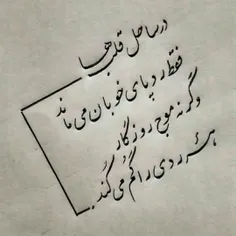 در ساحل قلب‌ها
فقط ردپای خوبان می ماند
وگرنه موج روزگار
هر ردی را گم می کند.